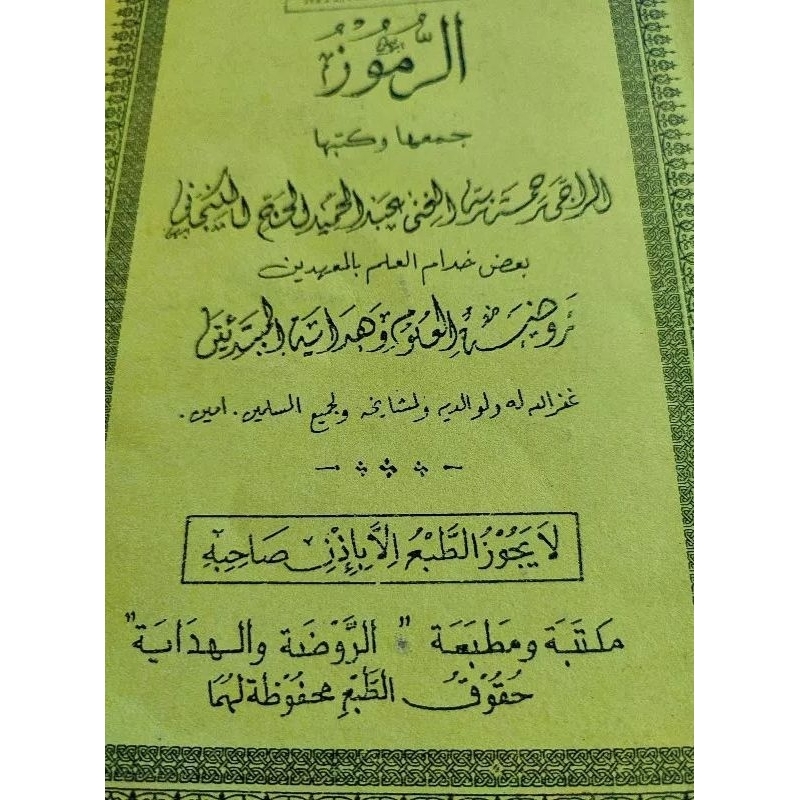 الرُّمُوْزُ
جمعها وكتبها
الراجى رحمة ربه الغنى عبد الحميد الحاج
بعض خدام العلم بالمعهدين
روضة العلوم وهداية المبتدئين
غفر الله له ولوالديه ولمشايخه ولجميع المسلمين. امين.
لَا يَجُوْزُ الطَّبْعُ اِلَّا بِإِذْنِ صَاحِبِهِ
مَكتَبَة ومَطبَعَة "الرَّوْضَة والهدَايَة"
حُقُوْقُ الطَّبْعِ مَحْفُوْظَة لَهُمَا